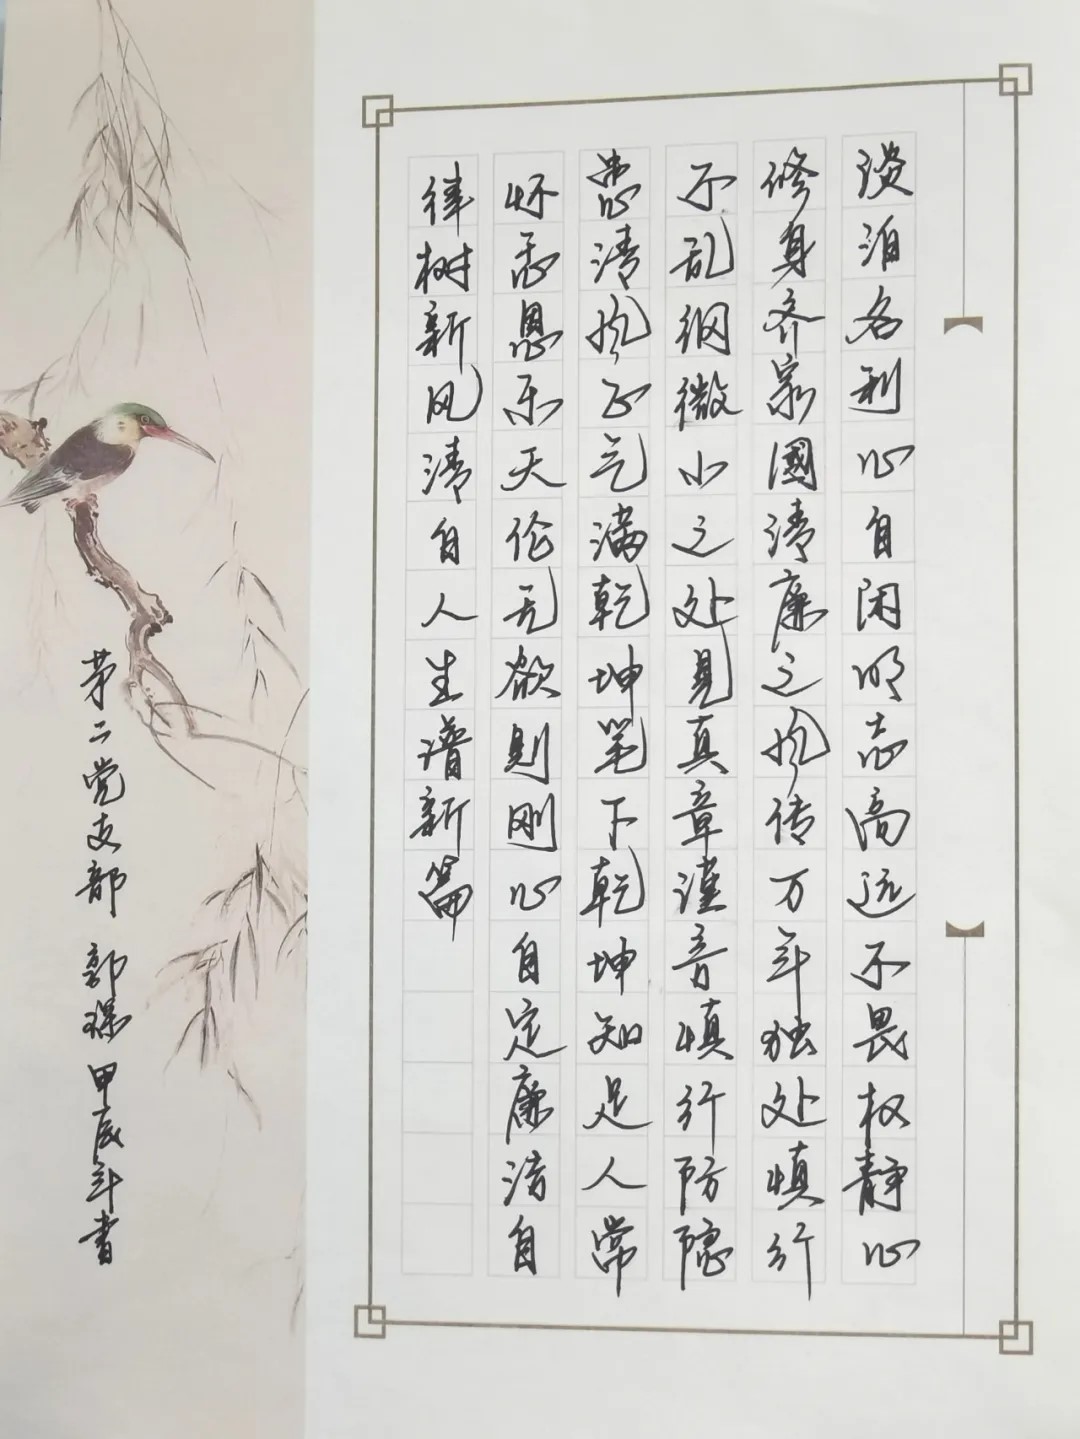 淡泊名利心自闲明志高远不畏权静心
修身齐家国清廉之风传万年独处慎行
不乱纲微小之处见真章谨言慎行防隐
患清风正气满乾坤笔下乾坤知足人常
怀感恩乐天伦无欲则刚心自定廉洁自
律树新风清自人生谱新篇
第二党支部 郭 甲辰年书